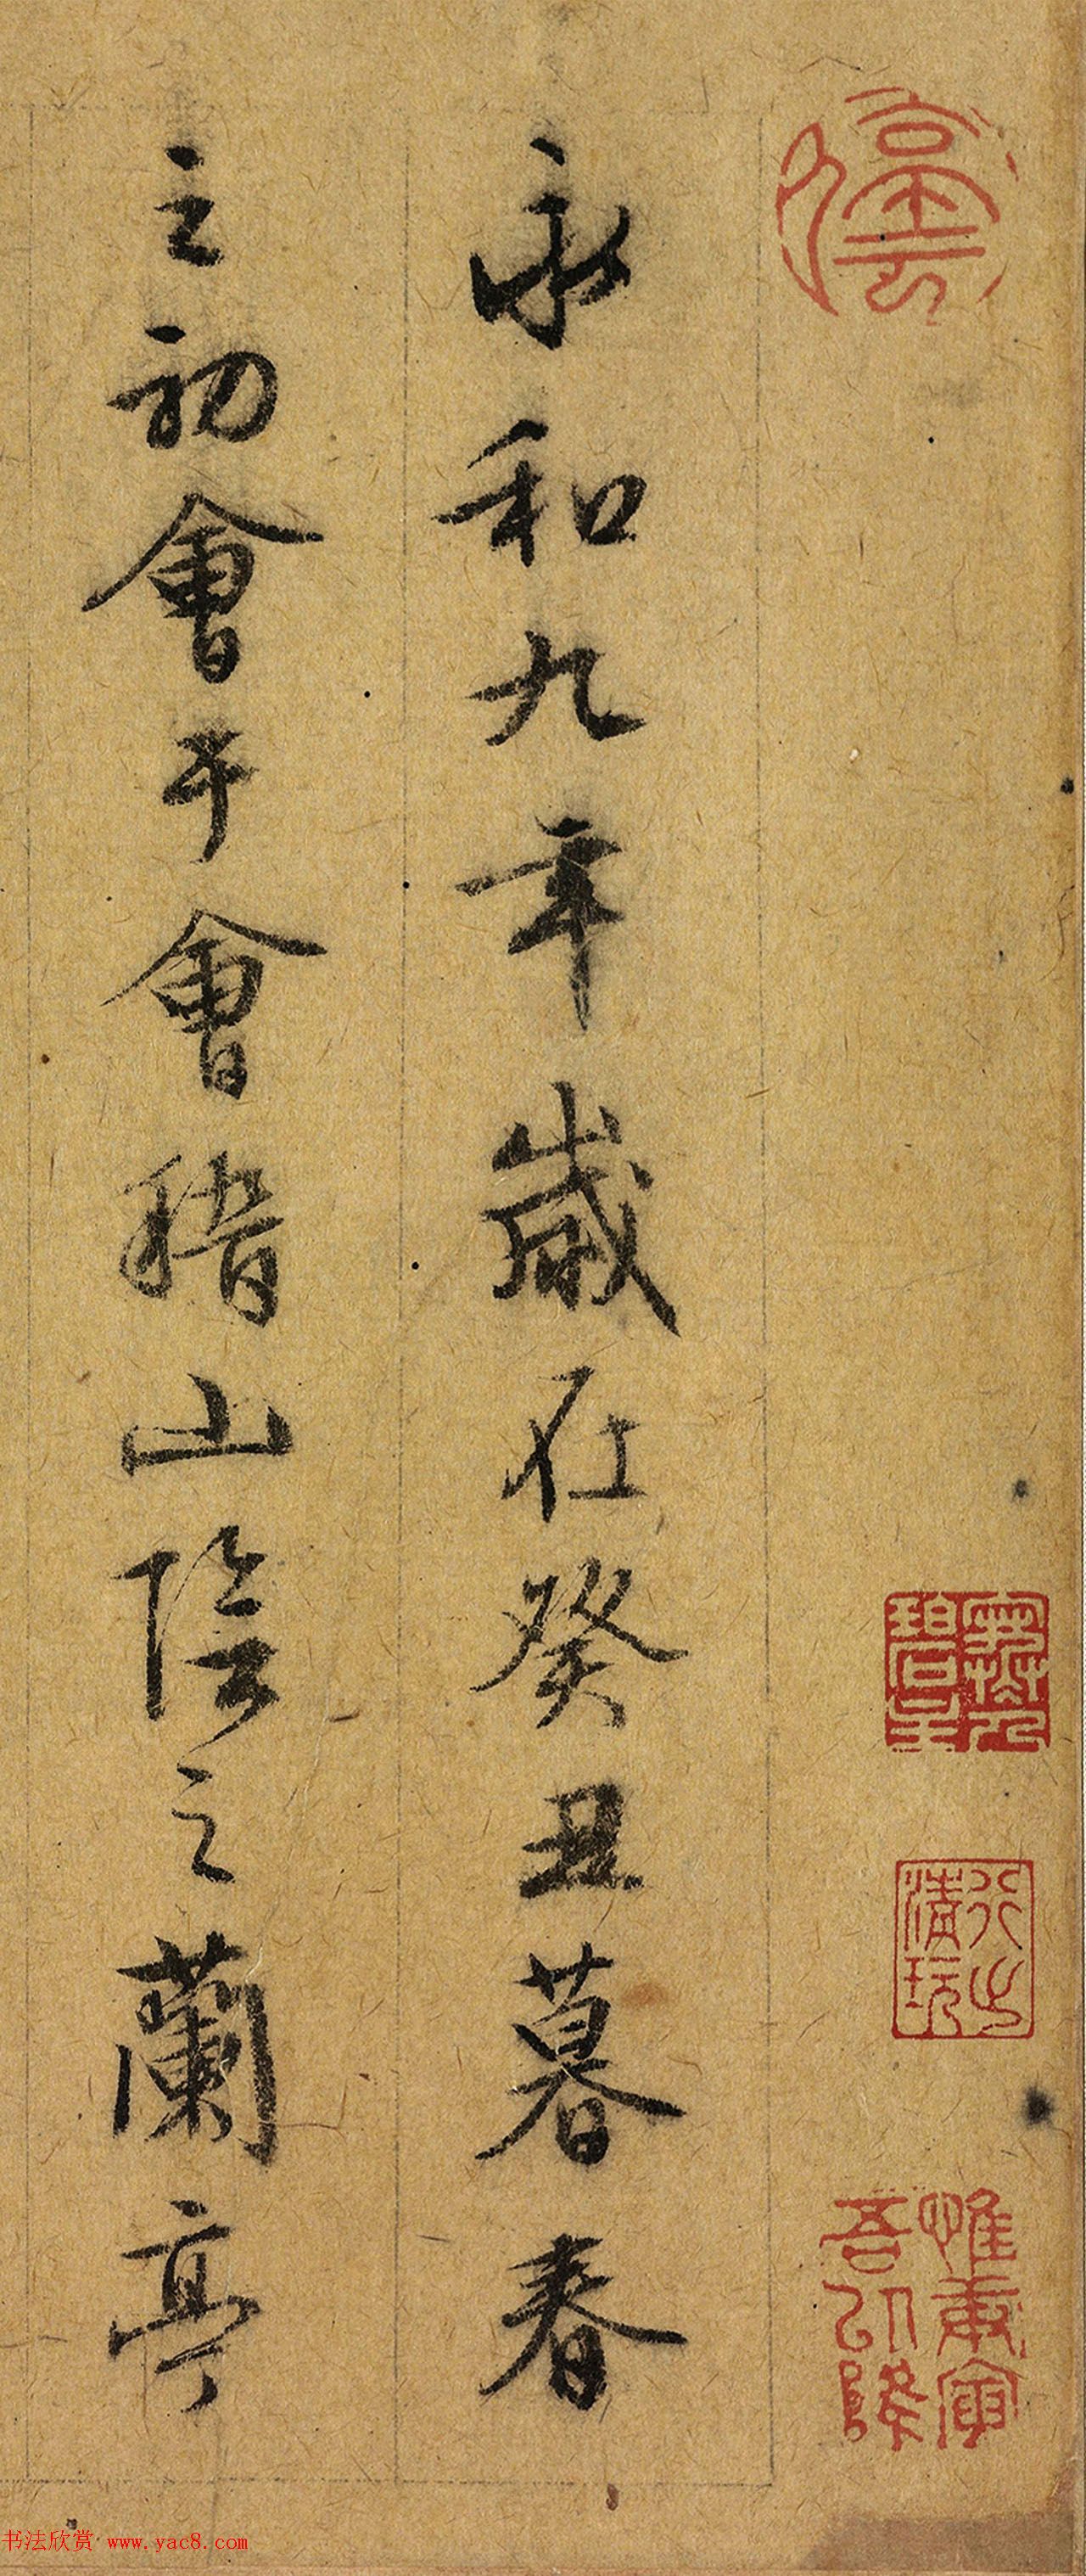 永和九年歲在癸丑暮春
之初會于會稽山陰之蘭亭
清玩
惟庚寅吾以降
书法欣赏 www.yac8.com